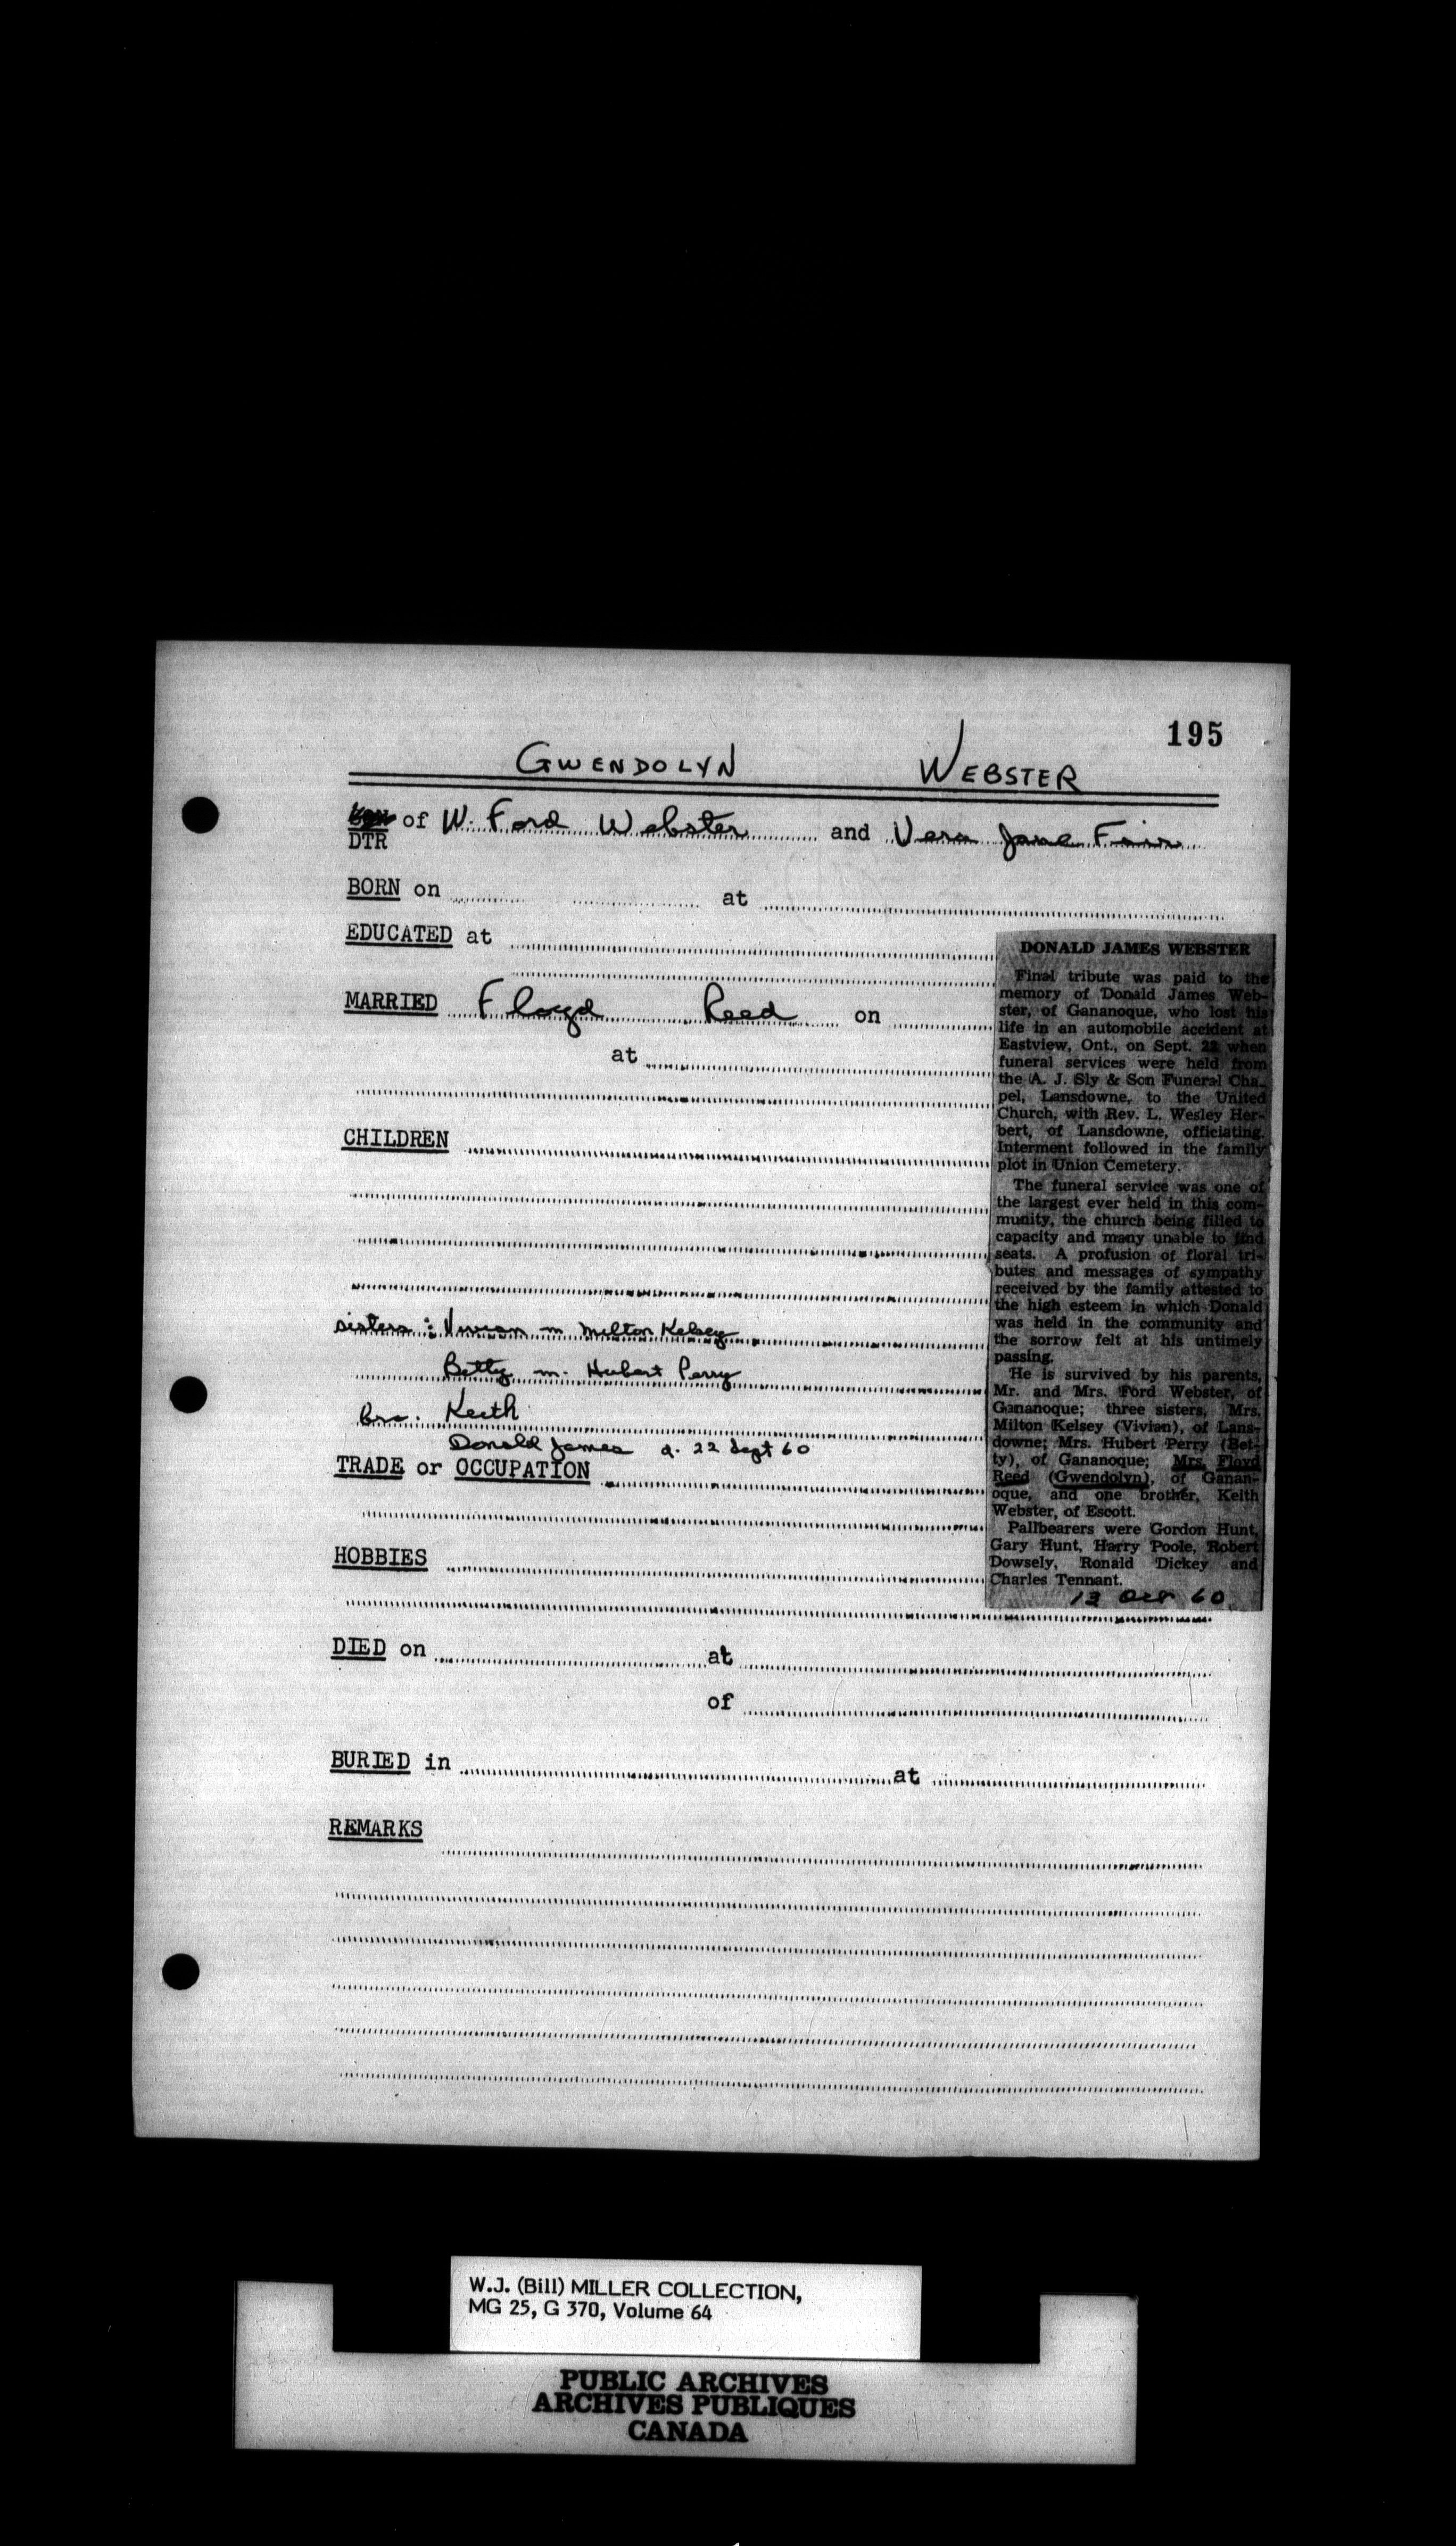 195
GWENDOLYN WEBSTER
of W. Ford Webster and Vera Jane Fair
DTR
BORN on at
EDUCATED at
MARRIED Floyd Reed on
at
CHILDREN
sisters: Vivian m Milton Kelsey
Betty m. Hubert Perry
Bro. Keith
Donald James d. 22 Sept 60
TRADE or OCCUPATION
HOBBIES
DIED on at
of
BURIED in at
REMARKS
DONALD JAMES WEBSTER
Final tribute was paid to the
memory of Donald James Web-
ster, of Gananoque, who lost his
life in an automobile accident at
Eastview, Ont., on Sept. 22 when
funeral services were held from
the A. J. Sly & Son Funeral Cha-
pel, Lansdowne, to the United
Church, with Rev. L. Wesley Her-
bert, of Lansdowne, officiating.
Interment followed in the family
plot in Union Cemetery.
The funeral service was one of
the largest ever held in this com-
munity, the church being filled to
capacity and many unable to find
seats. A profusion of floral tri-
butes and messages of sympathy
received by the family attested to
the high esteem in which Donald
was held in the community and
the sorrow felt at his untimely
passing.
He is survived by his parents,
Mr. and Mrs. Ford Webster, of
Gananoque; three sisters, Mrs.
Milton Kelsey (Vivian), of Lans-
downe; Mrs. Hubert Perry (Bet-
ty), of Gananoque; Mrs. Floyd
Reed (Gwendolyn), of Ganan-
oque, and one brother, Keith
Webster, of Escott.
Pallbearers were Gordon Hunt,
Gary Hunt, Harry Poole, Robert
Dowsely, Ronald Dickey and
Charles Tennant.
13 Oct 60
W.J. (Bill) MILLER COLLECTION,
MG 25, G 370, Volume 64
PUBLIC ARCHIVES
ARCHIVES PUBLIQUES
CANADA